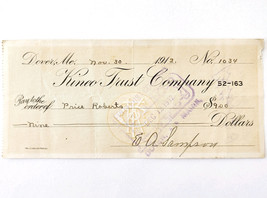 Dover, Me. Nov. 30 1912. No. 1034
Kineo Trust Company 52-163
Pay to the order of Price Roberts $900
Nine Dollars
E A Sampson